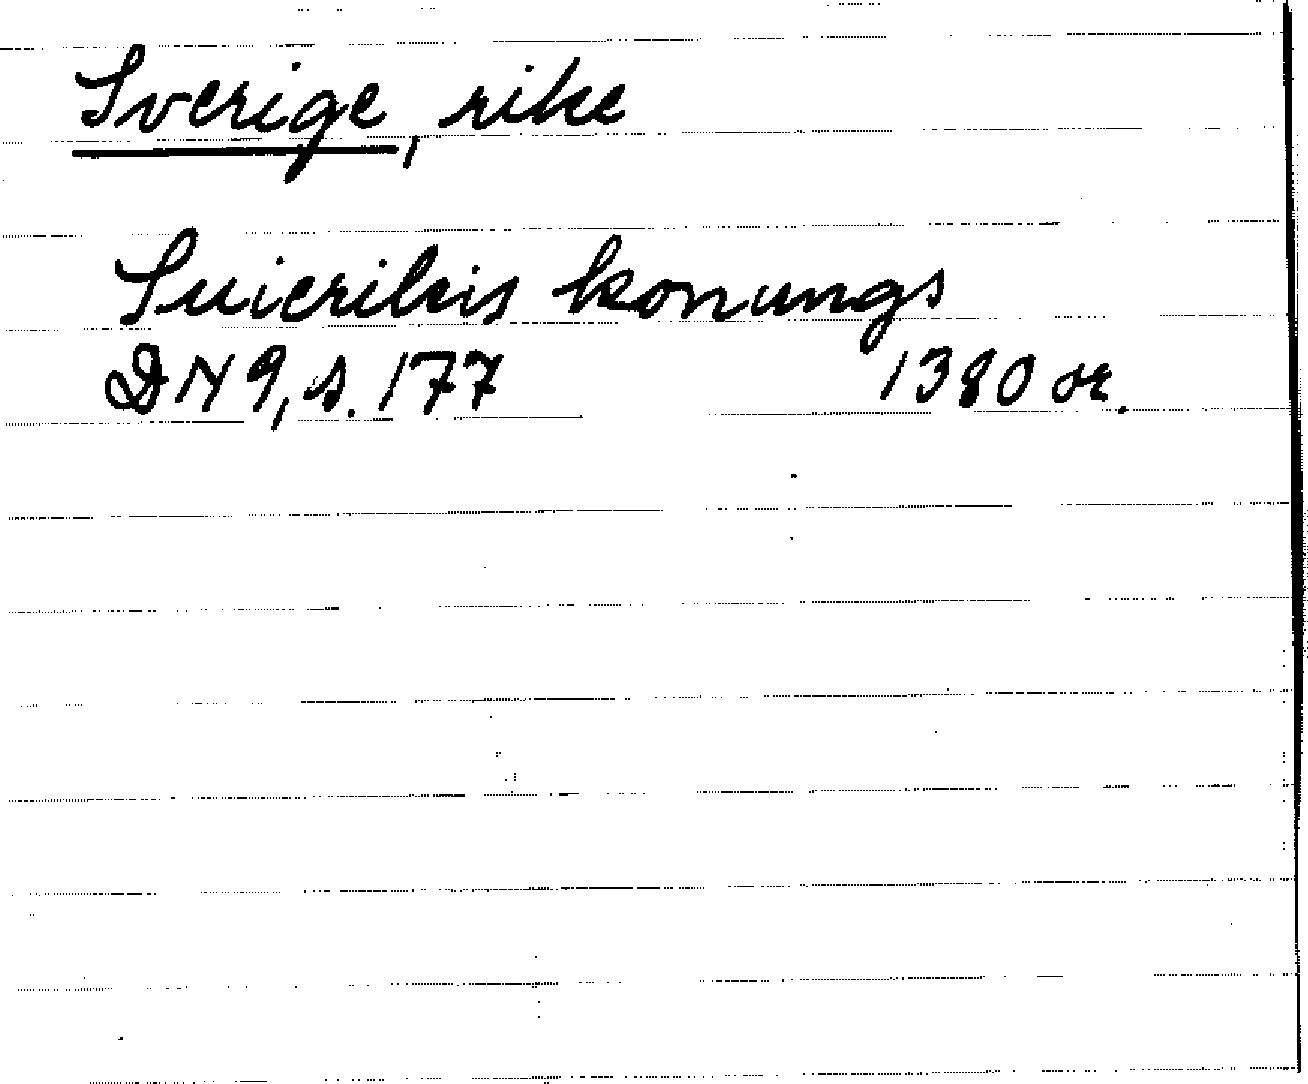 Sverige, rike
Suierikis konungs
DN 9, s. 177 1380 or.